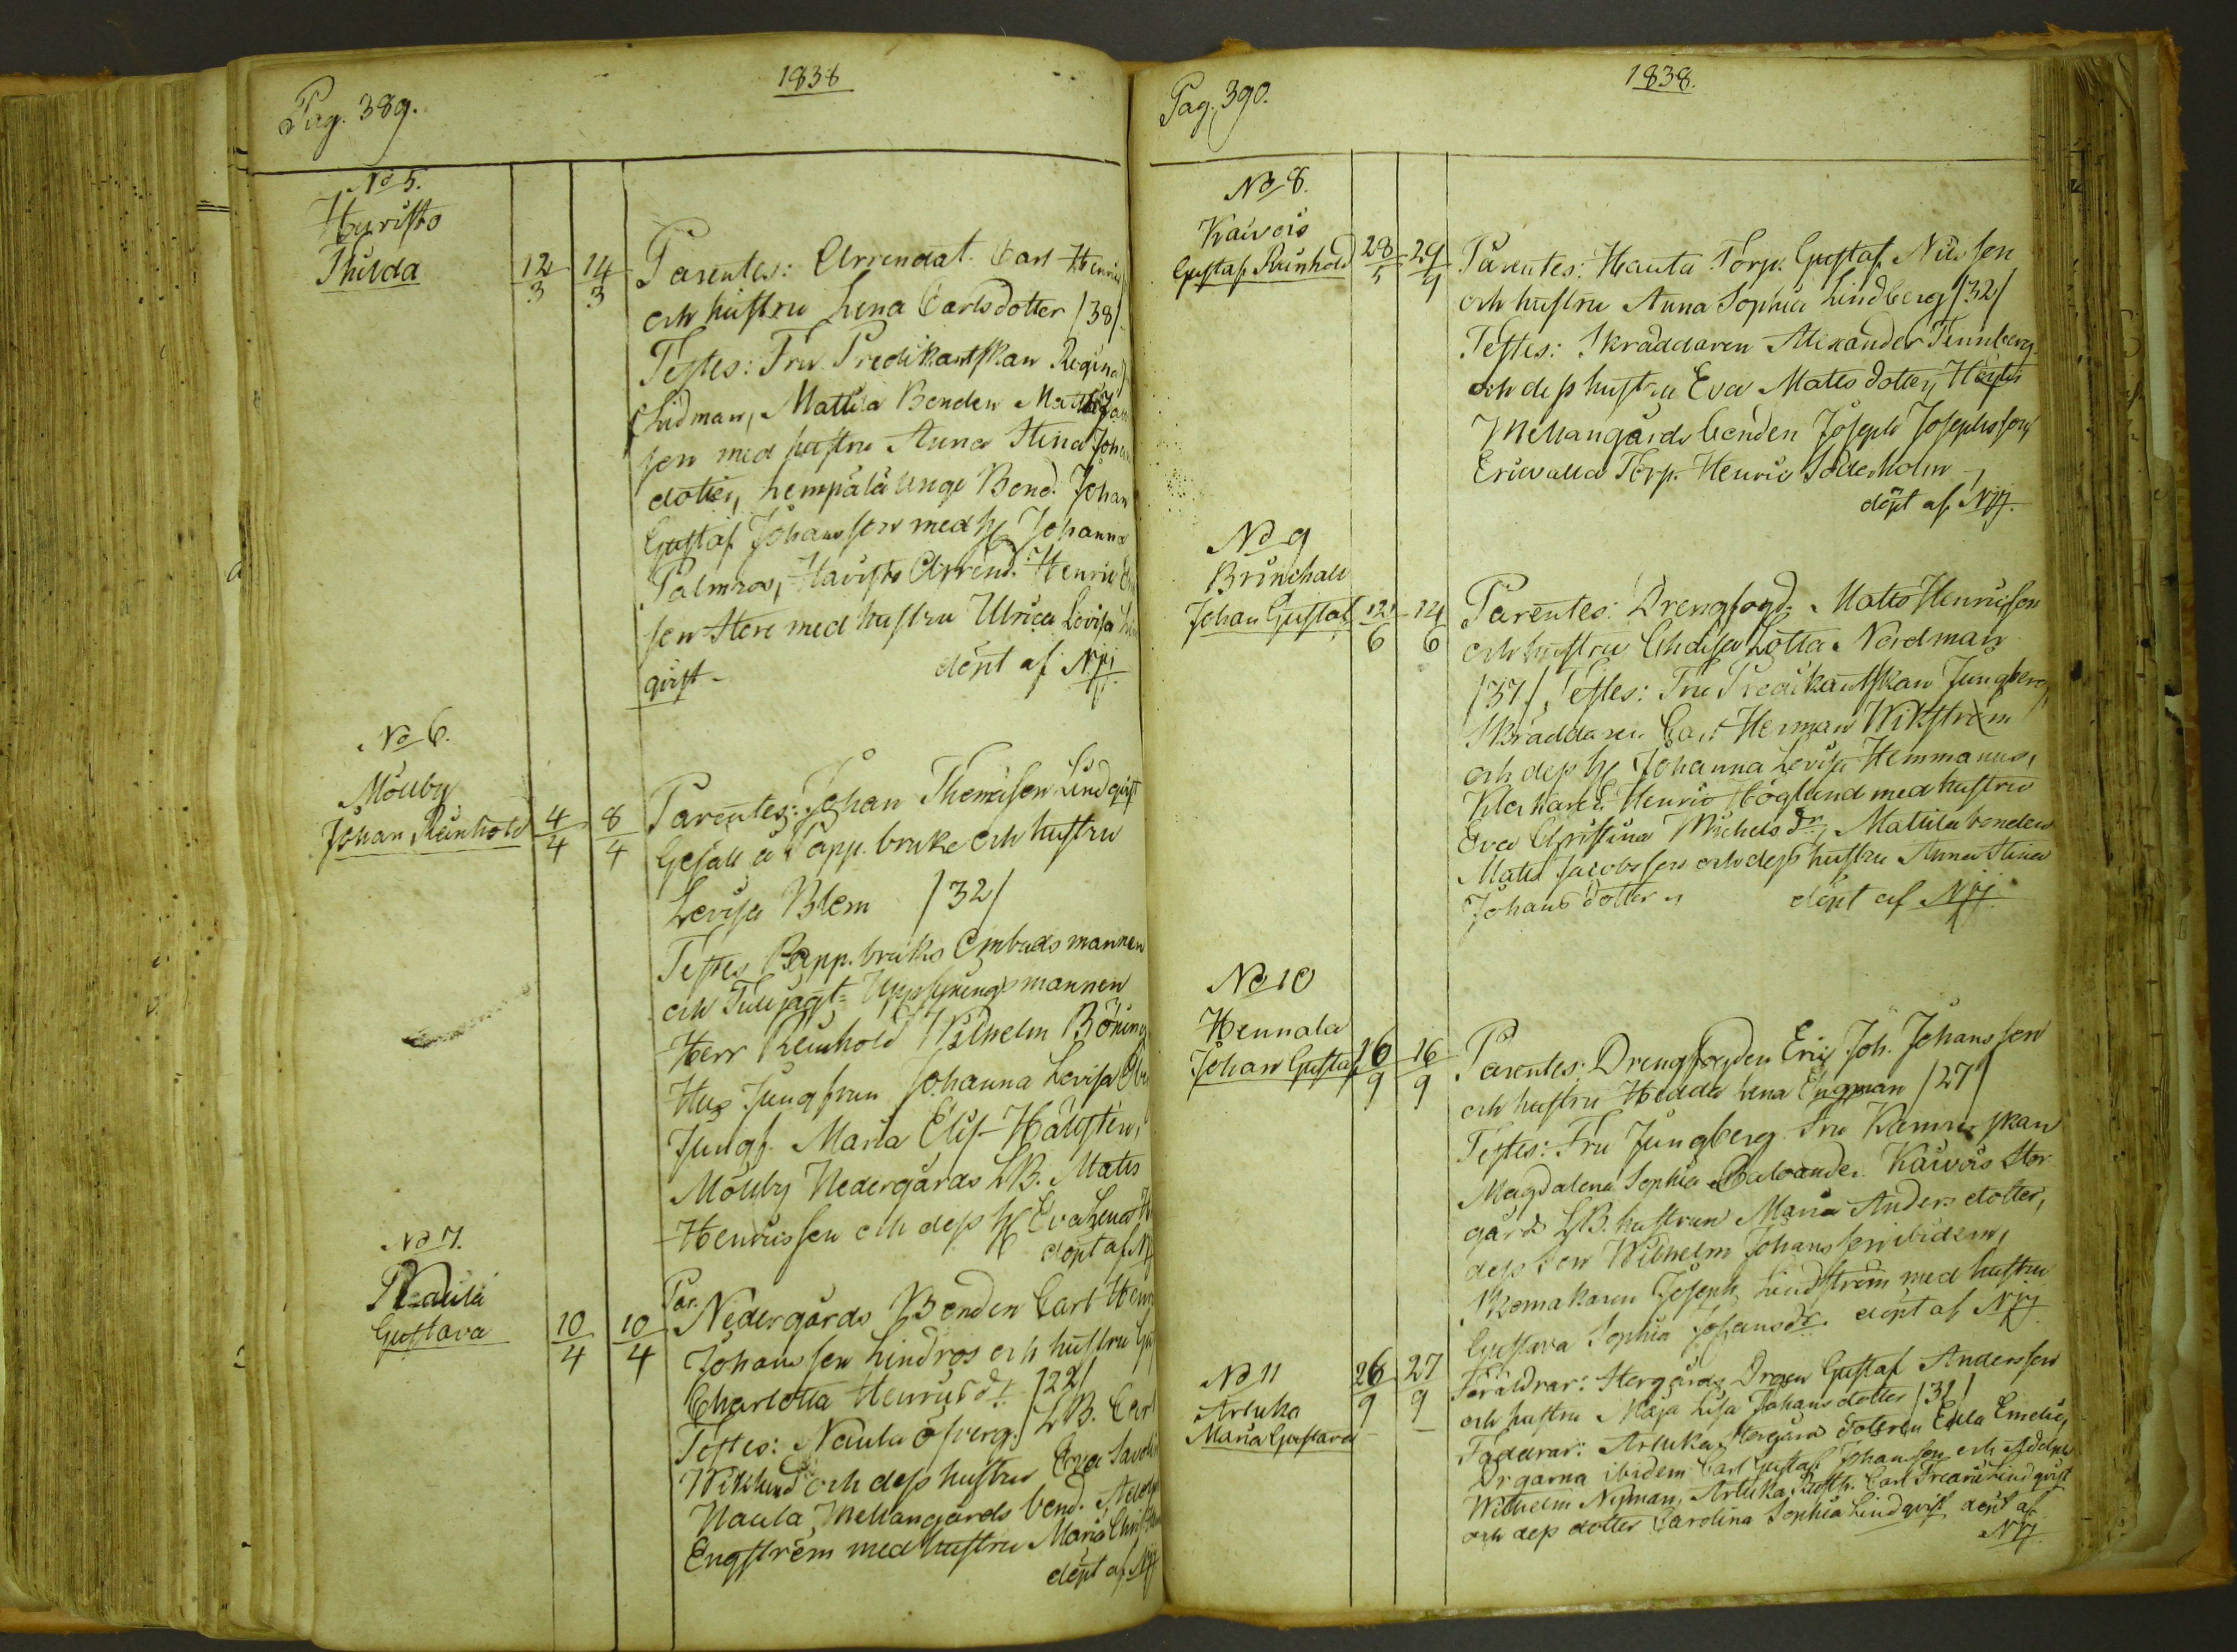 Pag. 389.
1838
No 5.
Thilda
12/3 14/3
Parentes: Arrendat. Carl Henric
och hustru Lena Carlsdotter /38/
Testes: Fru Predikantskan Regina
Lidman, Mattila Bonden Matts
son med hustru Anna Stina Johans
dotter, Lempälä Unge Bond. Johan
Gustaf Johansson med h Johanna
Palmros, Havisto Arrend. Henric
son Sten med hustru Ulrica Lovisa
qvist - döpt af Nyj
No 6.
Möuby
Johan Reinhold
4/4 8/4
Parentes: Johan Thomasson Lindqvist
Gesäll å Papp. bruke och hustru
Lovisa Blom /32/
Testes Papp. bruks Ombudsmannen
och Uppsyningsmannen
Herr Reinhold Wilhelm Böning
Hus Jungfrun Johanna Lovisa
Jungf. Maria Elis.
Möuby Nedergårds LB. Matts
Henricsson och dess h Eva Lena
döpt af Nyj
No 7.
Naula
Gustava
10/4 10/4
Par.
Nedergårds Bonden Carl Henr
Johansson Lindros och hustru
Charlotta Henricsdr. /22/
Testes: Naula öfverg. LB. Carl
Wiklund och dess hustru Eva
Naula Mellangårds bond.
Engström med hustru Maria Christina
döpt af Nyj
Pag. 390.
1838.
No 8.
Kaivois
Gustaf Reinhold
28/5 29/9
Parentes: Hauta Torp. Gustaf Nilsson
och hustru Anna Sophia Lindberg /32/
Testes: Skräddaren Alexander Tennberg
och dess hustru Eva Matts dotter,
Mellangårds bonden Joseph Josephsson,
Torp. Henric Söderholm
döpt af Nyj.
No 9
Brinchall
Johan Gustaf
12/6 14/6
Parentes: Drengfogd. Matts Henricsson
och hustru Lotta Nordman
/37/, Testes: Fru Predikantskan Jungberg,
Skräddaren Carl Herman Wikström
och dess h Johanna Lovisa Hemmanus,
Klockaren Henric Höglund med hustru
Eva Christina Michelsdr, Mattila bonden
Matts Jacobsson och dess hustru Anna Stina
Johans dotter döpt af Nyj
No 10
Hennala
Johan Gustaf
16/9 16/9
Parentes: Drengfogden Eric Joh. Johansson
och hustru Hedda Lena Engman /27/
Testes: Fru Jungberg. Fru
Magdalena Sophia Kaivois Stor
gårds LB. hustrun Maria Anders dotter,
dess son Wilhelm Johansson ibidem,
Skomakaren Joseph Lindström med hustru
Gustava Sophia Johansdr. döpt af Nyj
No 11
Artuka
Maria Gustava
26/9 27/9
Föräldrar: Storgårds Drgen Gustaf Andersson
och hustru Maja Lisa Johans dotter /31/
Faddrar: Artuka Storgård Ulla Emelie,
Drgarna ibidem Carl Gustaf Johansson och
Wilhelm Nyman, Artuka Rustb. Carl Fredric Lindqvist
och dess dotter Carolina Sophia Lindqvist döpt af
Nyj